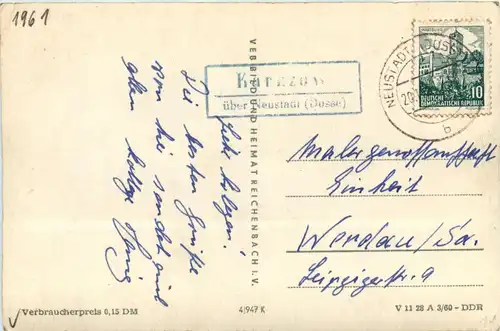 1961
Liebe Kollegen!
Die besten Grüße
von hier sendet euch
allen Kollege
VEB BILD UND HEIMAT REICHENBACH I. V.
über Neustadt (Dosse)
NEUSTADT (DOSSE)
b
DEUTSCHE
DEMOKRATISCHE REPUBLIK
10
Malergenossenschaft
Einheit
Werdau/Sa.
Leipzigerstr. 9
Verbraucherpreis 0,15 DM
4/947 K
V 11 28 A 3/60 - DDR